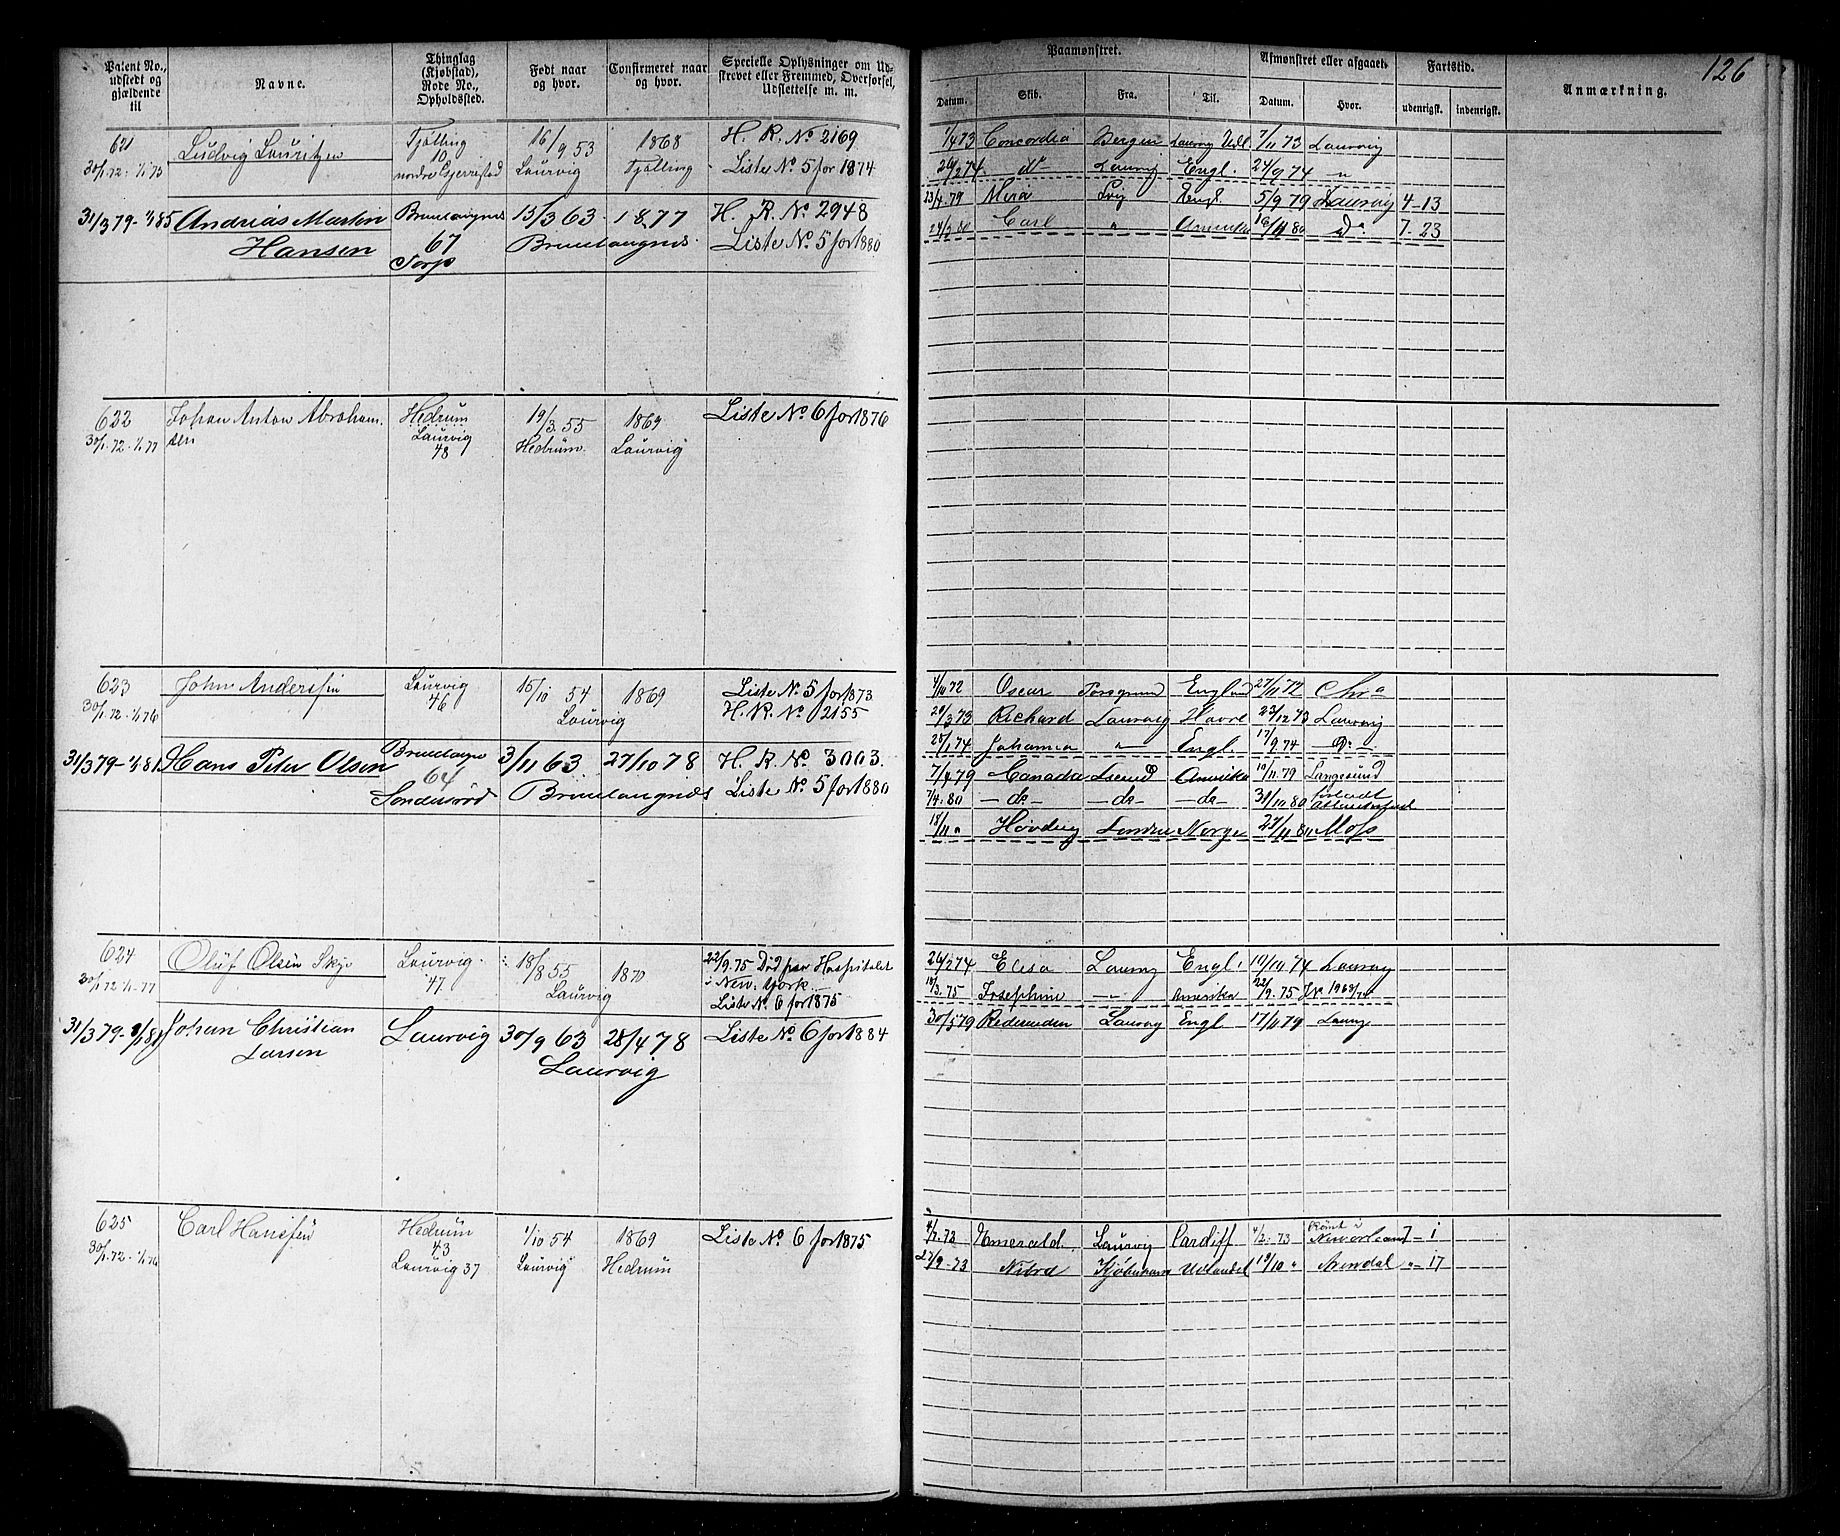 Patent No., udstedt og gjældende til
Navne.
Thinglag (Kjøbstad), Rode No., Opholdssted.
Født naar og hvor.
Confirmeret naar og hvor.
Specielle Oplysninger om Udskrevet eller Fremmed, Overførsel, Udslettelse m. m.
Paamønstret.
Afmønstret eller afgaaet.
Fartstid.
Anmærkning.
126
Datum.
Skib.
Fra.
Til.
Datum.
Hvor.
udenrigsk.
indenrigsk.
621
30/1.72-1/1 75
Ludvig Lauritzen
Tjølling
10
nordre
16/9 53
Laurvig
1868
Tjølling
H. R. No 2169
Liste No 5 for 1874
1/4 73 Concordia Bergen 7/11 73 Laurvig
26/2 74 do Laurvig Engl. 24/9 74 "
31/3 79-1/1 85
Andreas Martin
Hansen
Brunlangnes
67
Torp
13/3 63
1877
Brunlangnes
H. R. No 2948
Liste No 5 for 1880
23/4.79 Mira Lvig Engl. 5/9 79 Laurvig 4-13
24/3 80 Carl " Amerika 16/11 80 do 7-23
622
30/1.72-1/1 77
Johan Anton Abraham-
sen
Hedrum
Laurvig
48
19/3.55
Hedrum.
1869
Laurvig
Liste No 6 for 1876
623
30/1.72-1/1 76
John Anderssen
Laurvig
46
15/10 54
Laurvig
1869
Liste No 5 for 1873
H. R. No 2155
4/10 72 Oscar Porsgrund England 27/11 72 Chra
29/3 73 Richard Laurvig Havre 23/12 73 Laurvig
25/1 74 Johanna " Engl. 17/9 74
31/3 79-1/1 81
Hans Peter Olsen
Brunlangnes
64
Søndersrød
3/11 63
27/10 78
Brunlangnes
H. R. No 3003.
Liste No 5 for 1880
7/4 79 Canada Amerika 19/11.79 Langesund
7/4.80 -do- -do- -do- 31/10 80 forladt
18/11 " Høvding London Norge 27/11 80 Moss
624
30/1 72-1/1-77
Oluf Olsen Skjø
Laurvig
47
18/8 55
Laurvig
1870
22/9.75 Død paa Hospitalet
i New-York.
Liste No 6 for 1875
26/2 74 Elisa Laurvig Engl. 10/10 74 Laurvig
18/3.75 Josephine " Amerika 22/9.75
31/3 79-1/1 85
Johan Christian
Larsen
Laurvig
30/9 63
28/4 78
Laurvig
Liste No 6 for 1884
30/5 79 Laurvig Engl 17/11 79 Laurvig
625
30/1.72-1/1 76
Carl Hanssen
Hedrum
43
Laurvig 37
1/10 54
Laurvig
1869
Hedrum
Liste No 6 for 1875
4/7.72 Emerald Laurvig Cardiff 4/2.73 Rømt i
New orleans 7-1
27/9-73 Kjøbenhavn Udlandet 19/10 " Arendal "-17